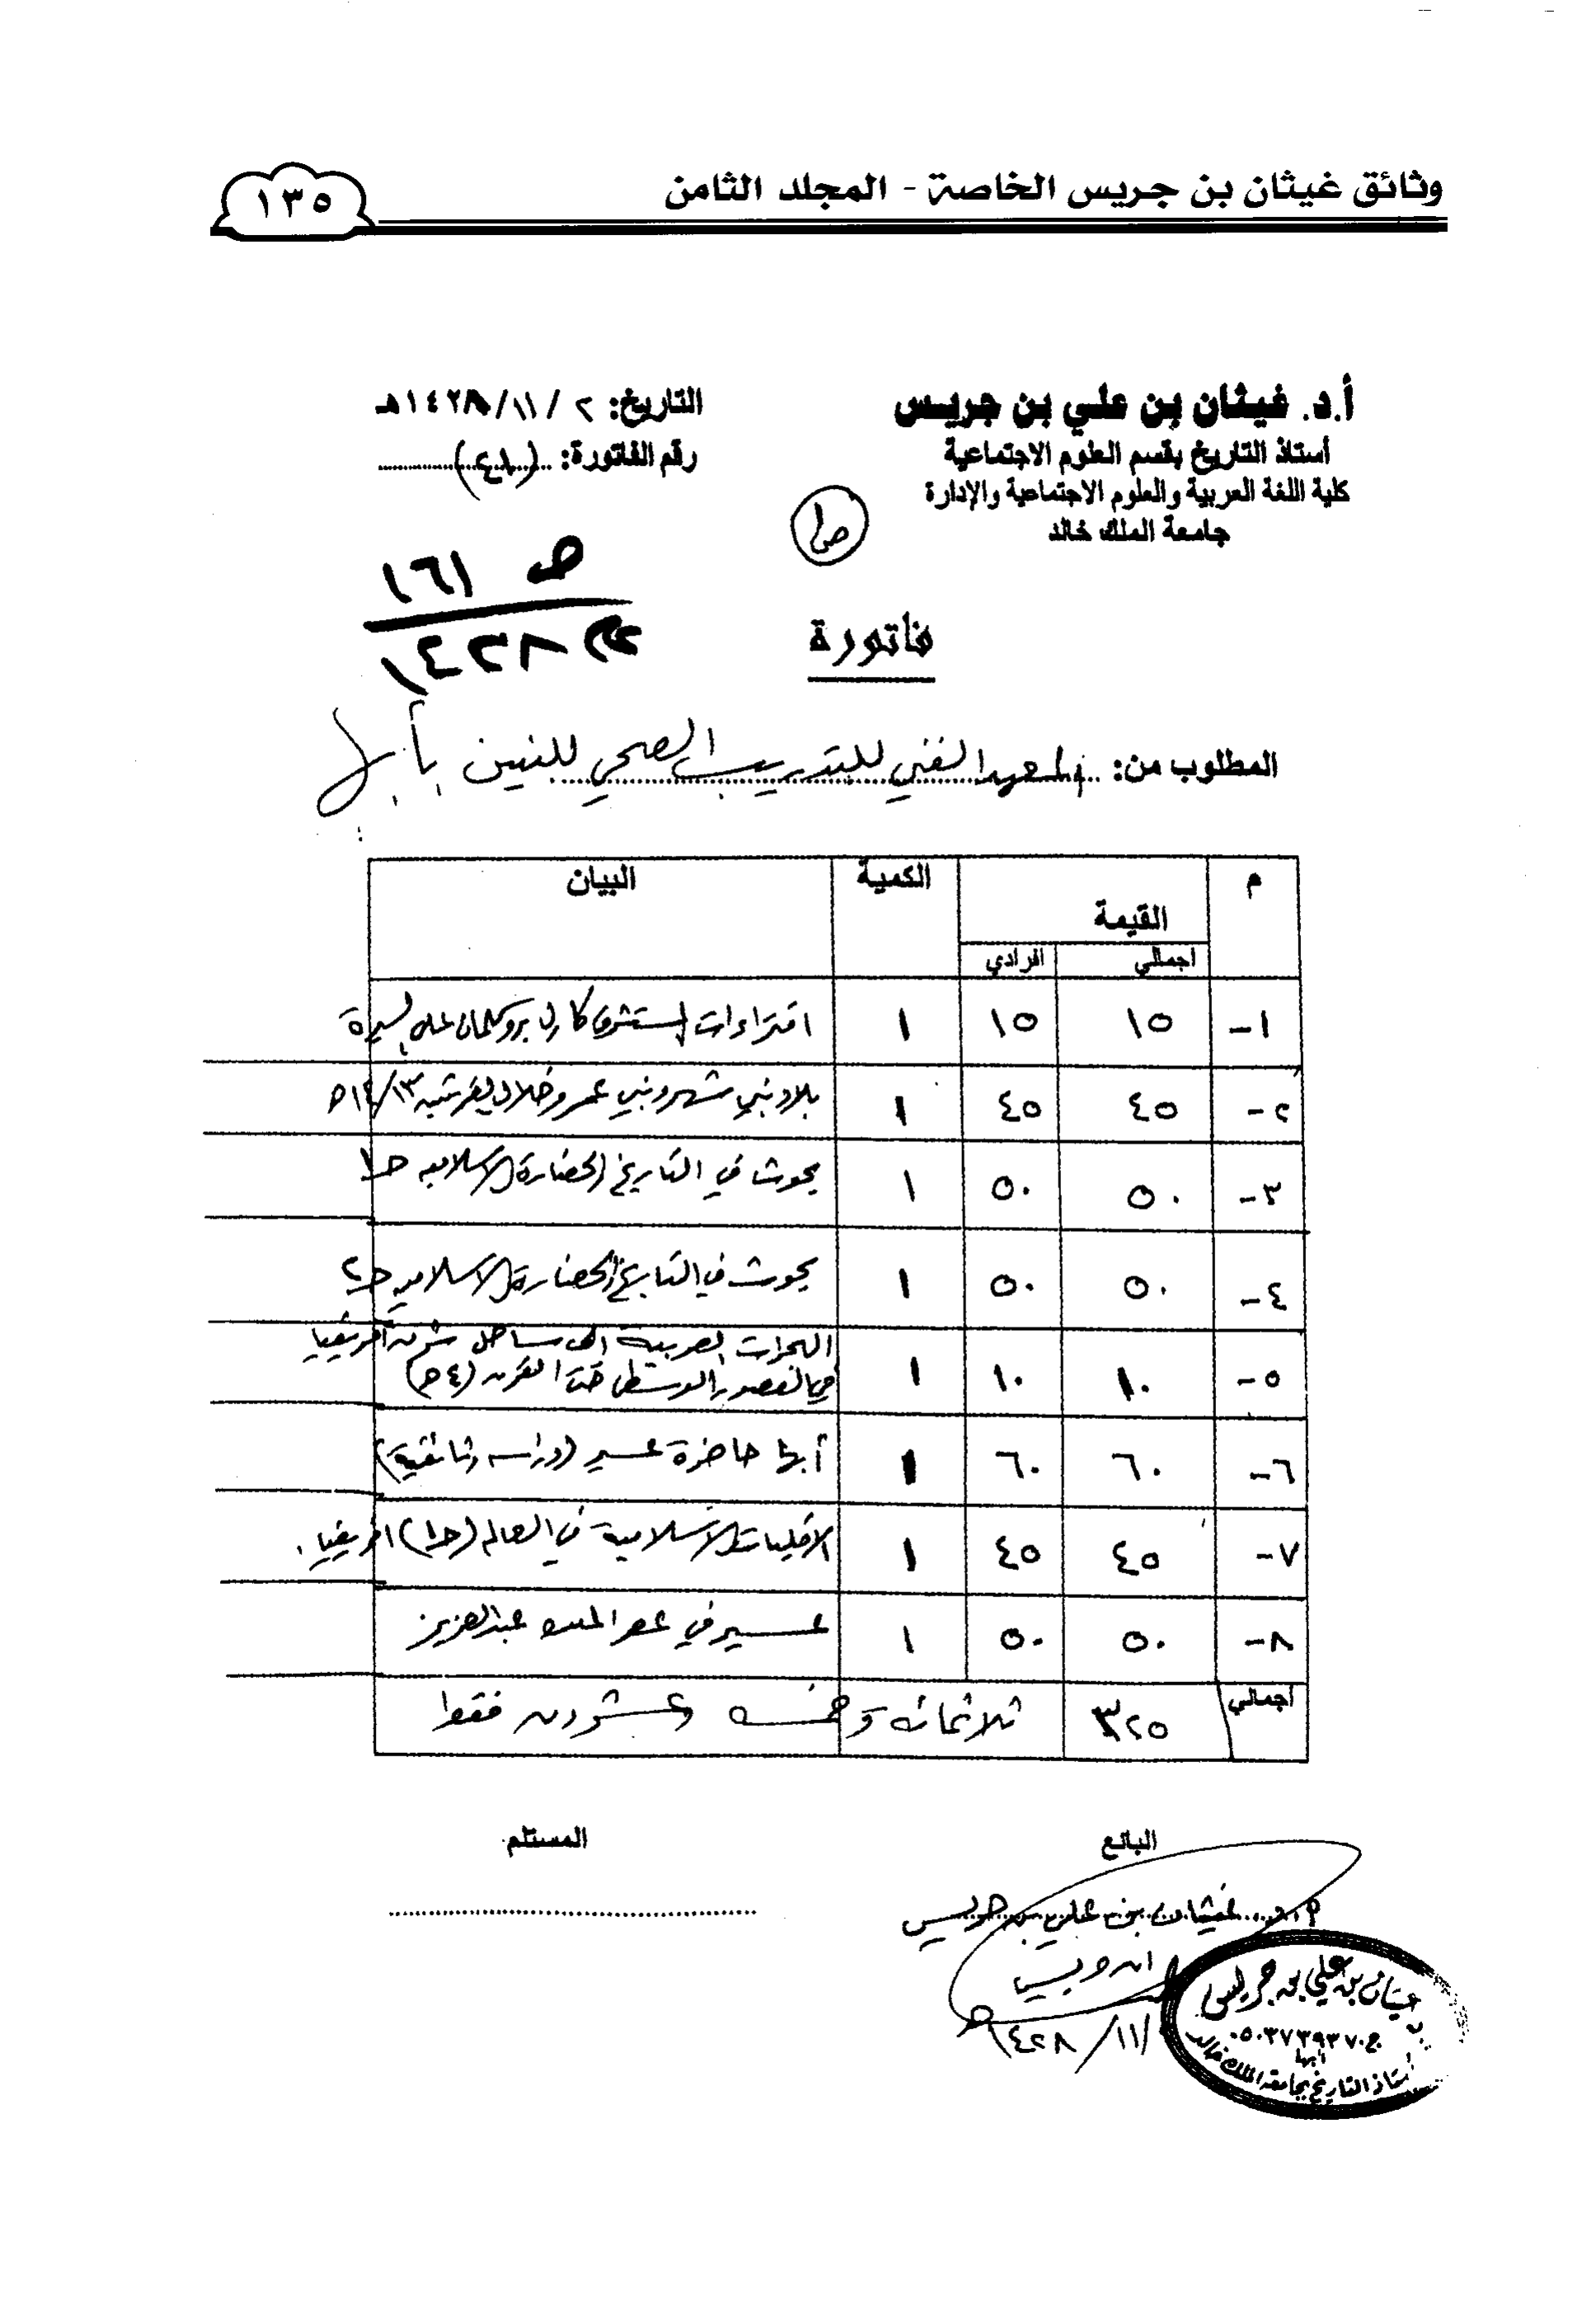 وثائق غيثان بن جريس الخاصة - المجلد الثامن
١٣٥
أ.د. غيثان بن علي بن جريس
أستاذ التاريخ بقسم العلوم الاجتماعية
كلية اللغة العربية والعلوم الاجتماعية والإدارة
جامعة الملك خالد
التاريخ: ٢ / ١١ / ١٤٢٨هـ
رقم الفاتورة: (٤٨)
ص١
ص ١٦١
م ١٤٢٨
فاتورة
المطلوب من: المعهد الفني للتدريب الصحي للبنين بأبها
م القيمة الكمية البيان
اجمالي افرادي
١- ١٥ ١٥ ١ افتراءات المستشرق كارل بروكلمان على السيرة
٢- ٤٥ ٤٥ ١ بلاد بني شهر وبني عمرو خلال القرنين ١٣/١٤هـ
٣- ٥٠ ٥٠ ١ بحوث في التاريخ والحضارة الاسلامية جـ١
٤- ٥٠ ٥٠ ١ بحوث في التاريخ والحضارة الاسلامية جـ٢
٥- ١٠ ١٠ ١ الهجرات العربية الى ساحل شرق أفريقيا
في العصور الوسطى حتى القرن (٤هـ)
٦- ٦٠ ٦٠ ١ أبها حاضرة عسير (دراسة وثائقية)
٧- ٤٥ ٤٥ ١ الاقليات الاسلامية في العالم (جـ١) افريقيا.
٨- ٥٠ ٥٠ ١ عسير في عصر الملك عبدالعزيز
اجمالي ٣٢٥ ثلاثمائة وخمسة وعشرون فقط
البائع
المستلم
أ.د. غيثان بن علي بن جريس
ابن جريس
/١١/ ١٤٢٨هـ
غيثان بن علي بن جريس
ج ٠٥٠٣٧٣٩٣٧٠
أبها
أستاذ التاريخ بجامعة الملك خالد